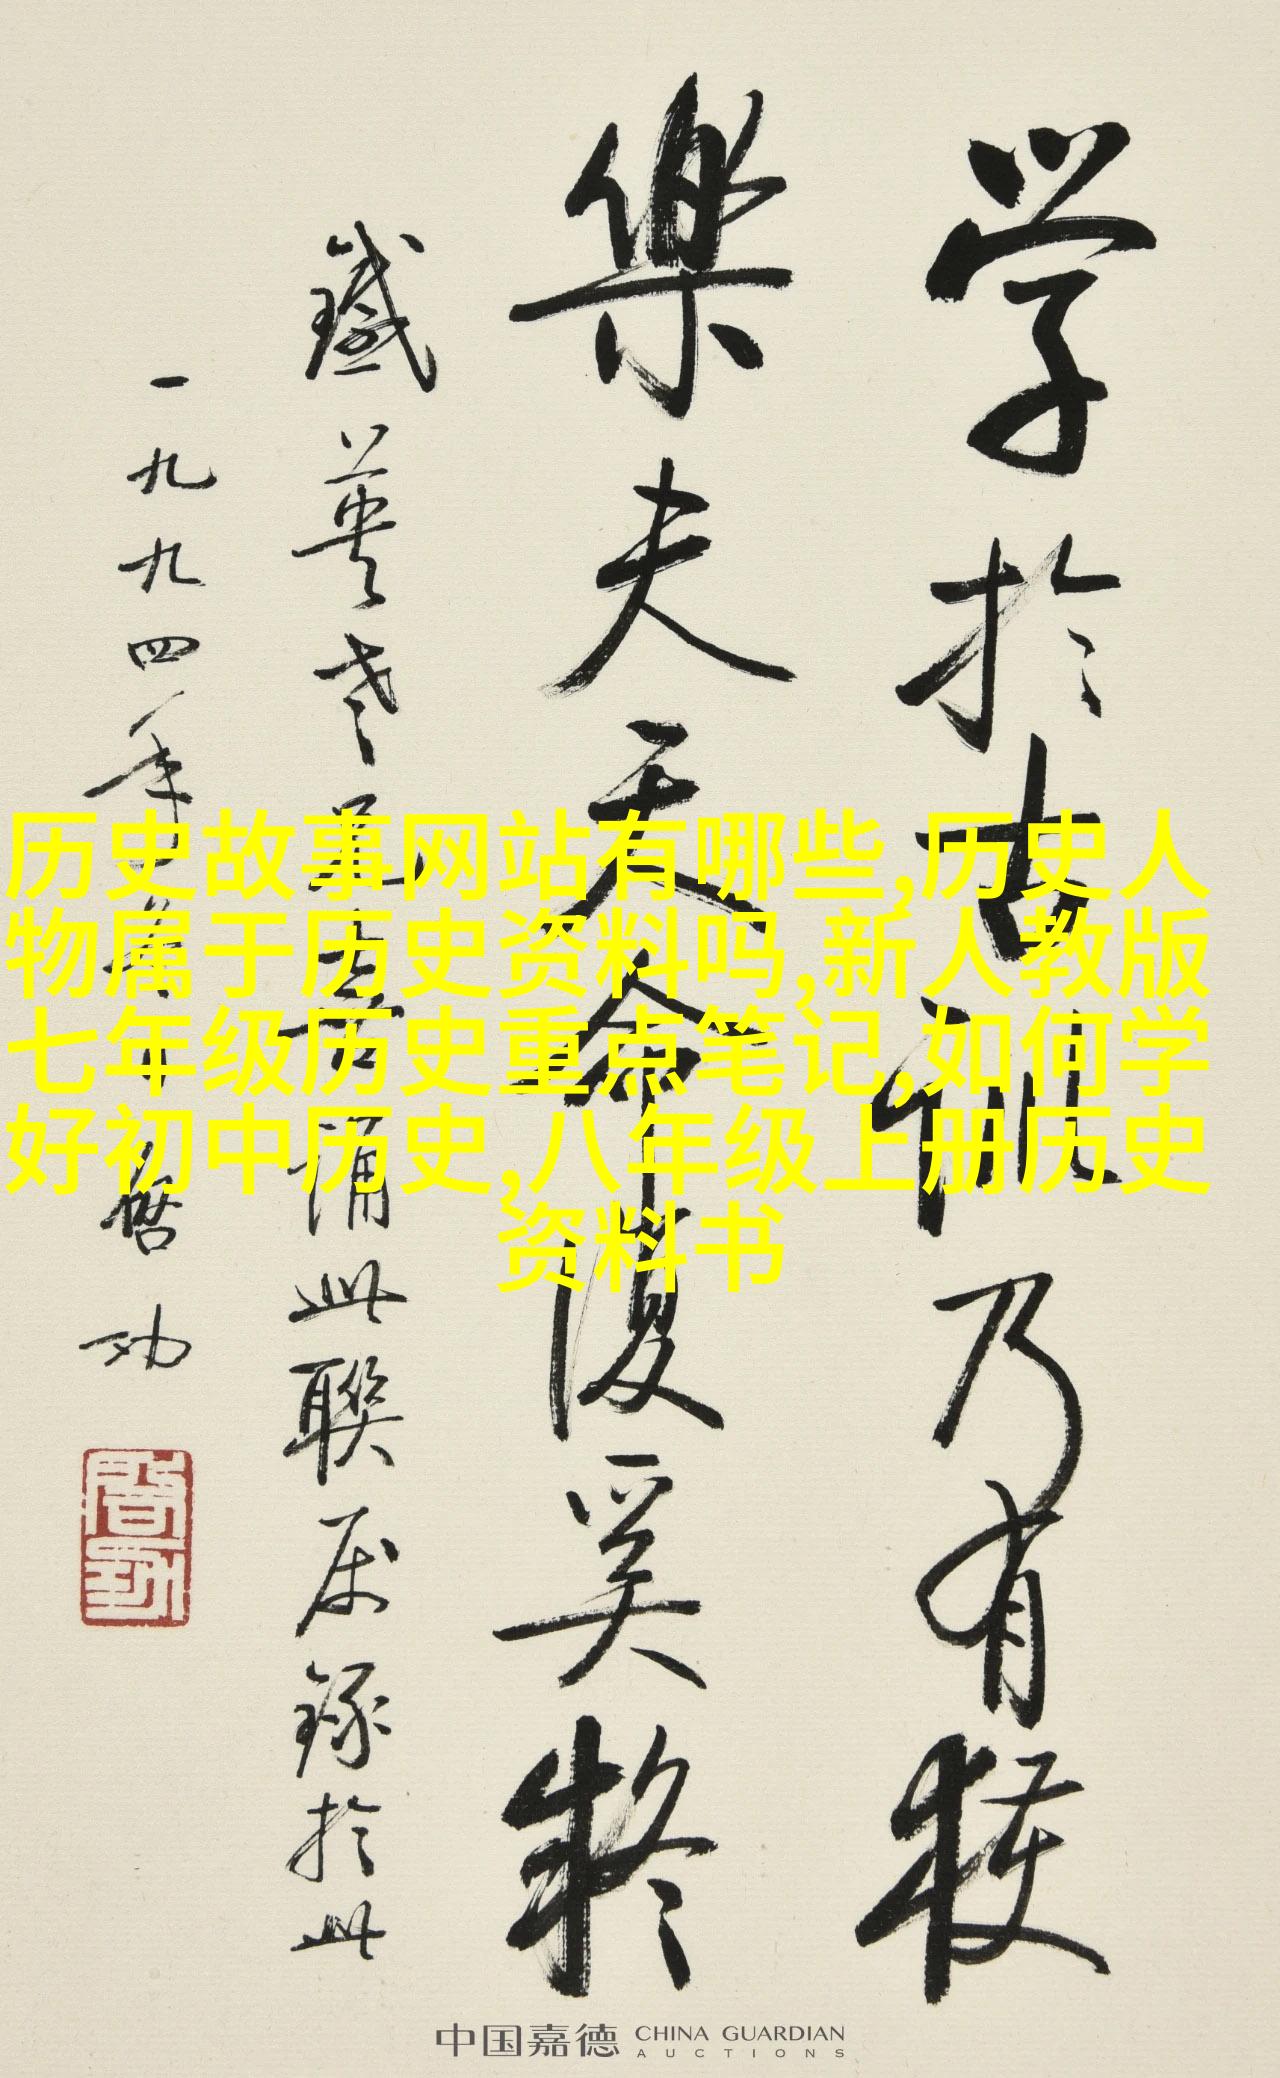 学於古训乃有获
樂夫天命復奚疑
鐵英老
诵此联属录於此
一九九四年
启功
启功
历史故事网站有哪些,历史人
物属于历史资料吗,新人教版
七年级历史重点笔记,如何学
好初中历史,八年级上册历史
资料书
中国嘉德 CHINA GUARDIAN
AUCTIONS